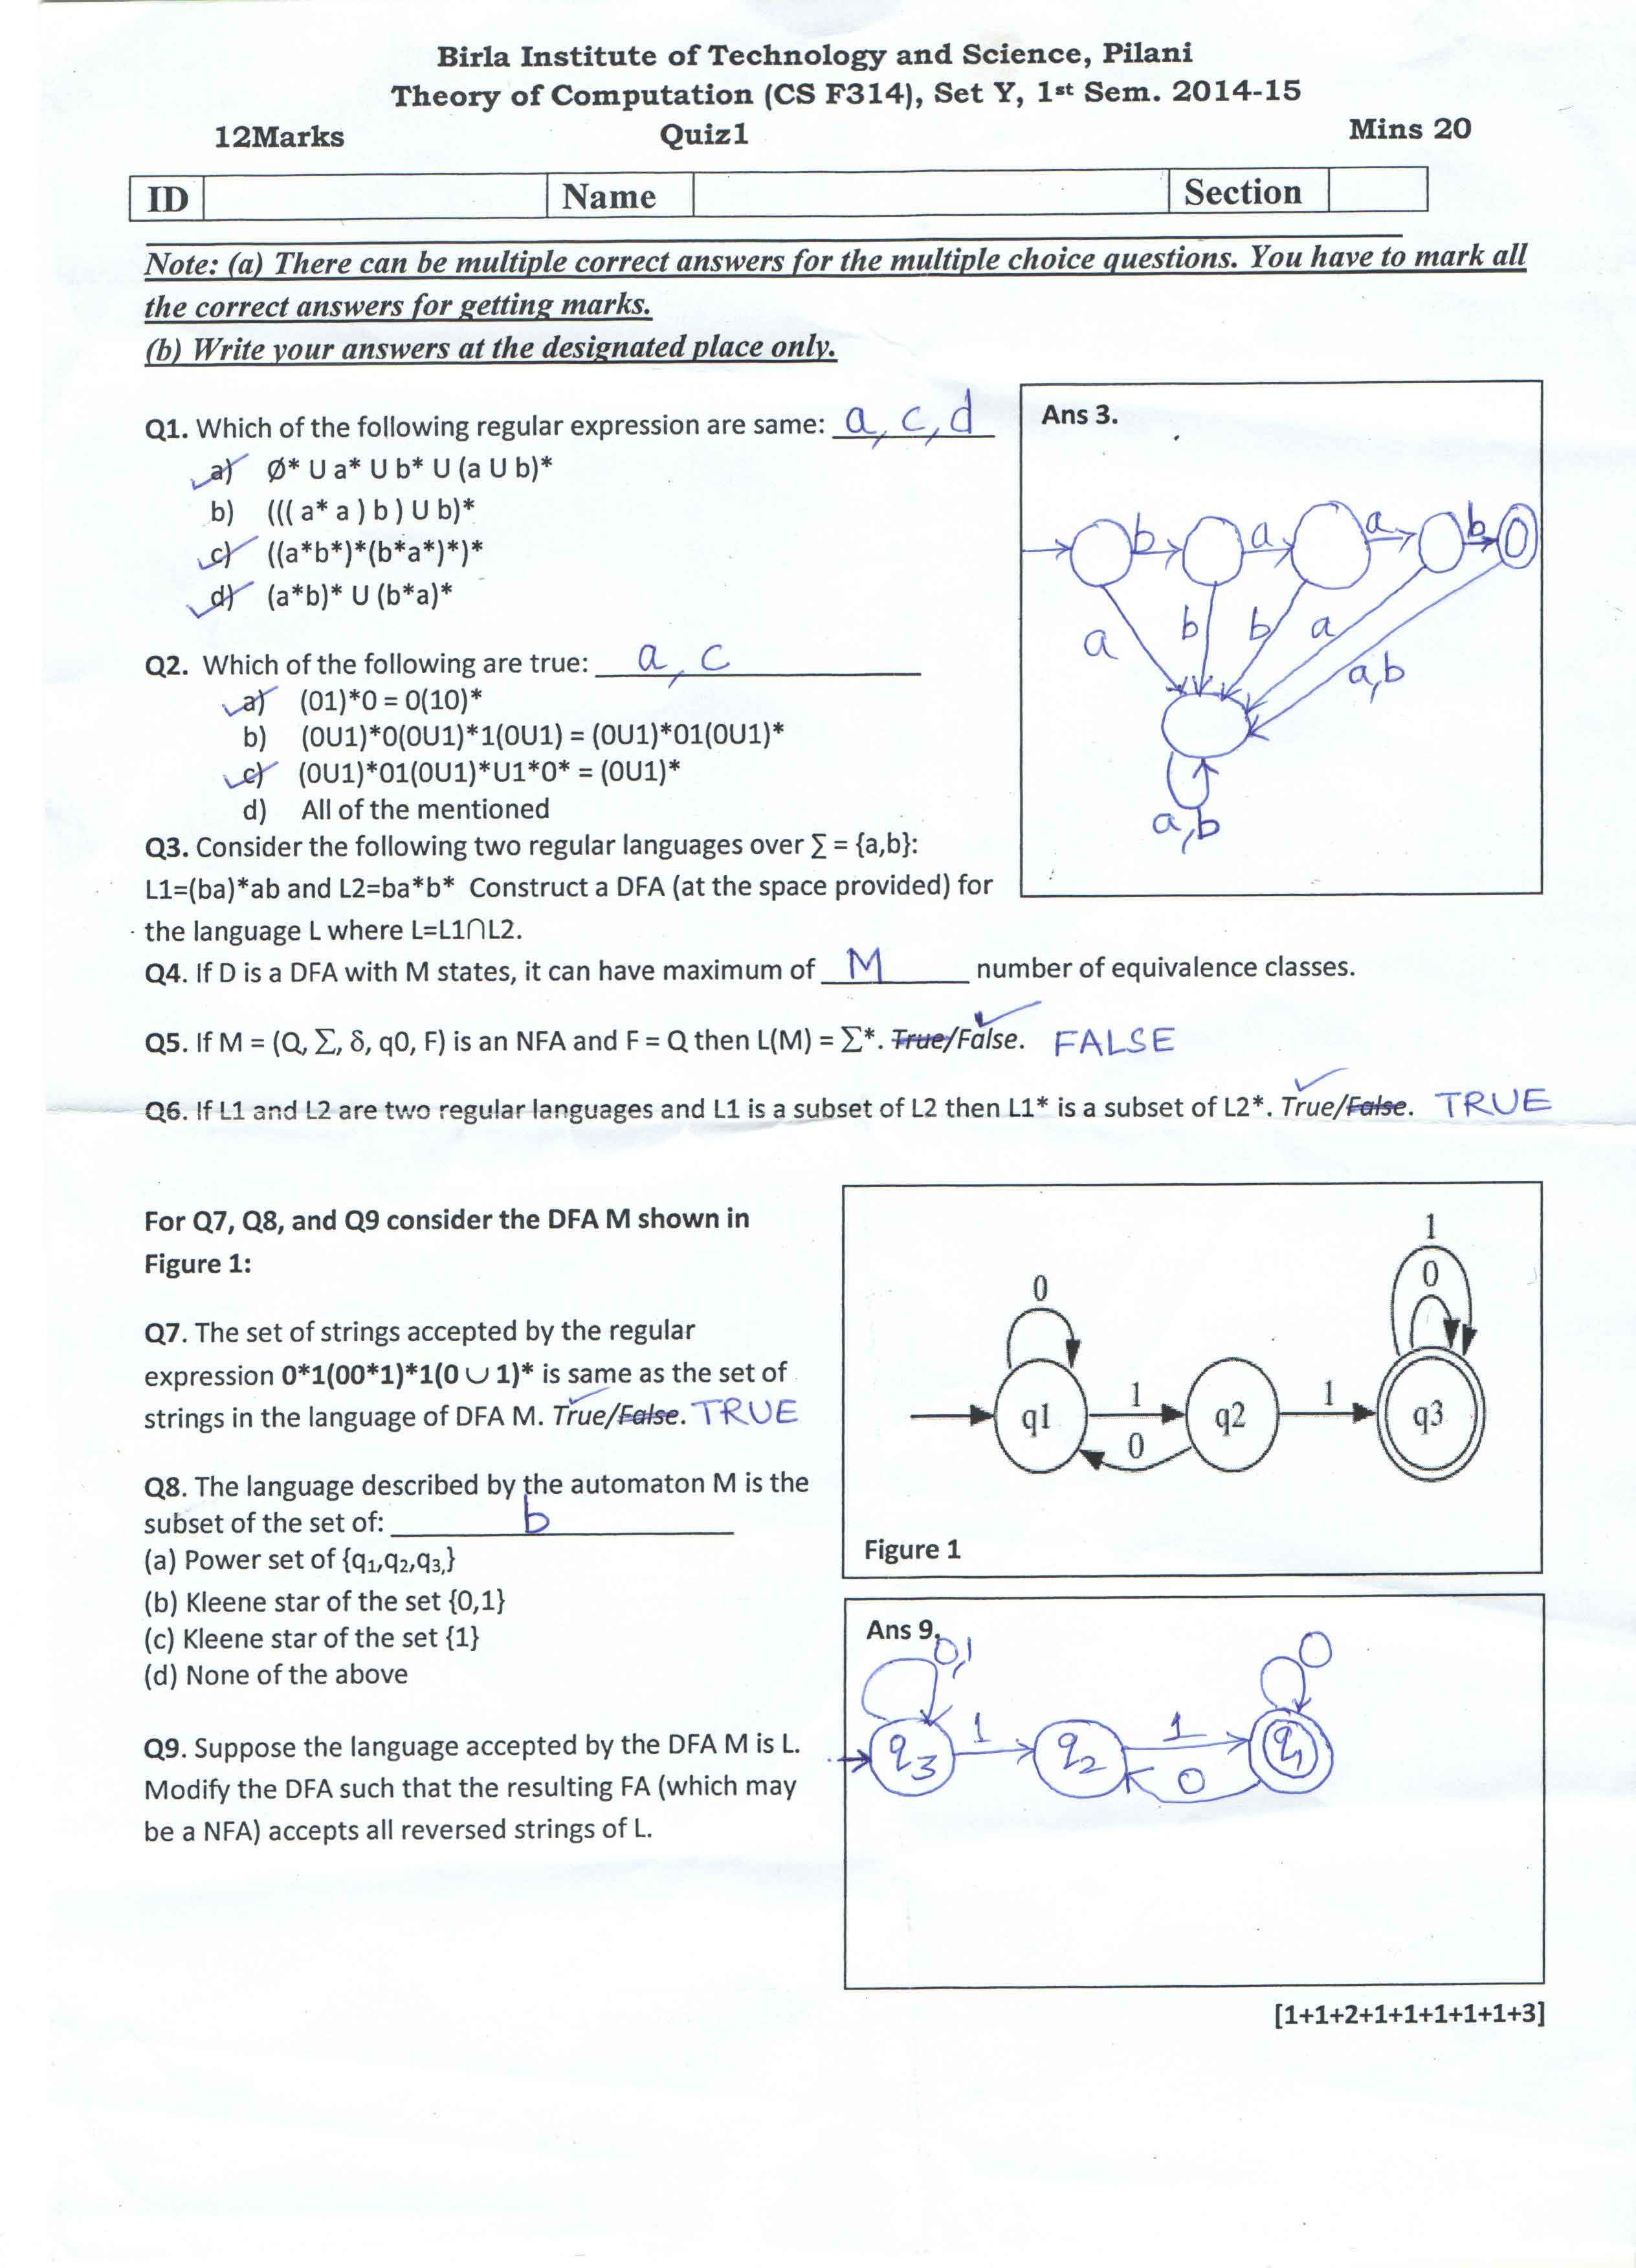 Birla Institute of Technology and Science, Pilani
Theory of Computation (CS F314), Set Y, 1st Sem. 2014-15
12Marks Quiz1 Mins 20
ID Name Section
Note: (a) There can be multiple correct answers for the multiple choice questions. You have to mark all
the correct answers for getting marks.
(b) Write your answers at the designated place only.
Q1. Which of the following regular expression are same: a, c, d
a) Ø* U a* U b* U (a U b)*
b) ((( a* a ) b ) U b)*
c) ((a*b*)*(b*a*)*)*
d) (a*b)* U (b*a)*
Q2. Which of the following are true: a, c
a) (01)*0 = 0(10)*
b) (0U1)*0(0U1)*1(0U1) = (0U1)*01(0U1)*
c) (0U1)*01(0U1)*U1*0* = (0U1)*
d) All of the mentioned
Q3. Consider the following two regular languages over ∑ = {a,b}:
L1=(ba)*ab and L2=ba*b* Construct a DFA (at the space provided) for
the language L where L=L1∩L2.
Ans 3.
b a a b
a b b a a,b
a,b
Q4. If D is a DFA with M states, it can have maximum of M number of equivalence classes.
Q5. If M = (Q, ∑, δ, q0, F) is an NFA and F = Q then L(M) = ∑*. True/False. FALSE
Q6. If L1 and L2 are two regular languages and L1 is a subset of L2 then L1* is a subset of L2*. True/False. TRUE
For Q7, Q8, and Q9 consider the DFA M shown in
Figure 1:
Q7. The set of strings accepted by the regular
expression 0*1(00*1)*1(0 ∪ 1)* is same as the set of
strings in the language of DFA M. True/False. TRUE
1
0 0
q1 1 q2 1 q3
0
Figure 1
Q8. The language described by the automaton M is the
subset of the set of: b
(a) Power set of {q1,q2,q3,}
(b) Kleene star of the set {0,1}
(c) Kleene star of the set {1}
(d) None of the above
Q9. Suppose the language accepted by the DFA M is L.
Modify the DFA such that the resulting FA (which may
be a NFA) accepts all reversed strings of L.
Ans 9.
0,1 0
q3 1 q2 1 q1
0
[1+1+2+1+1+1+1+1+3]